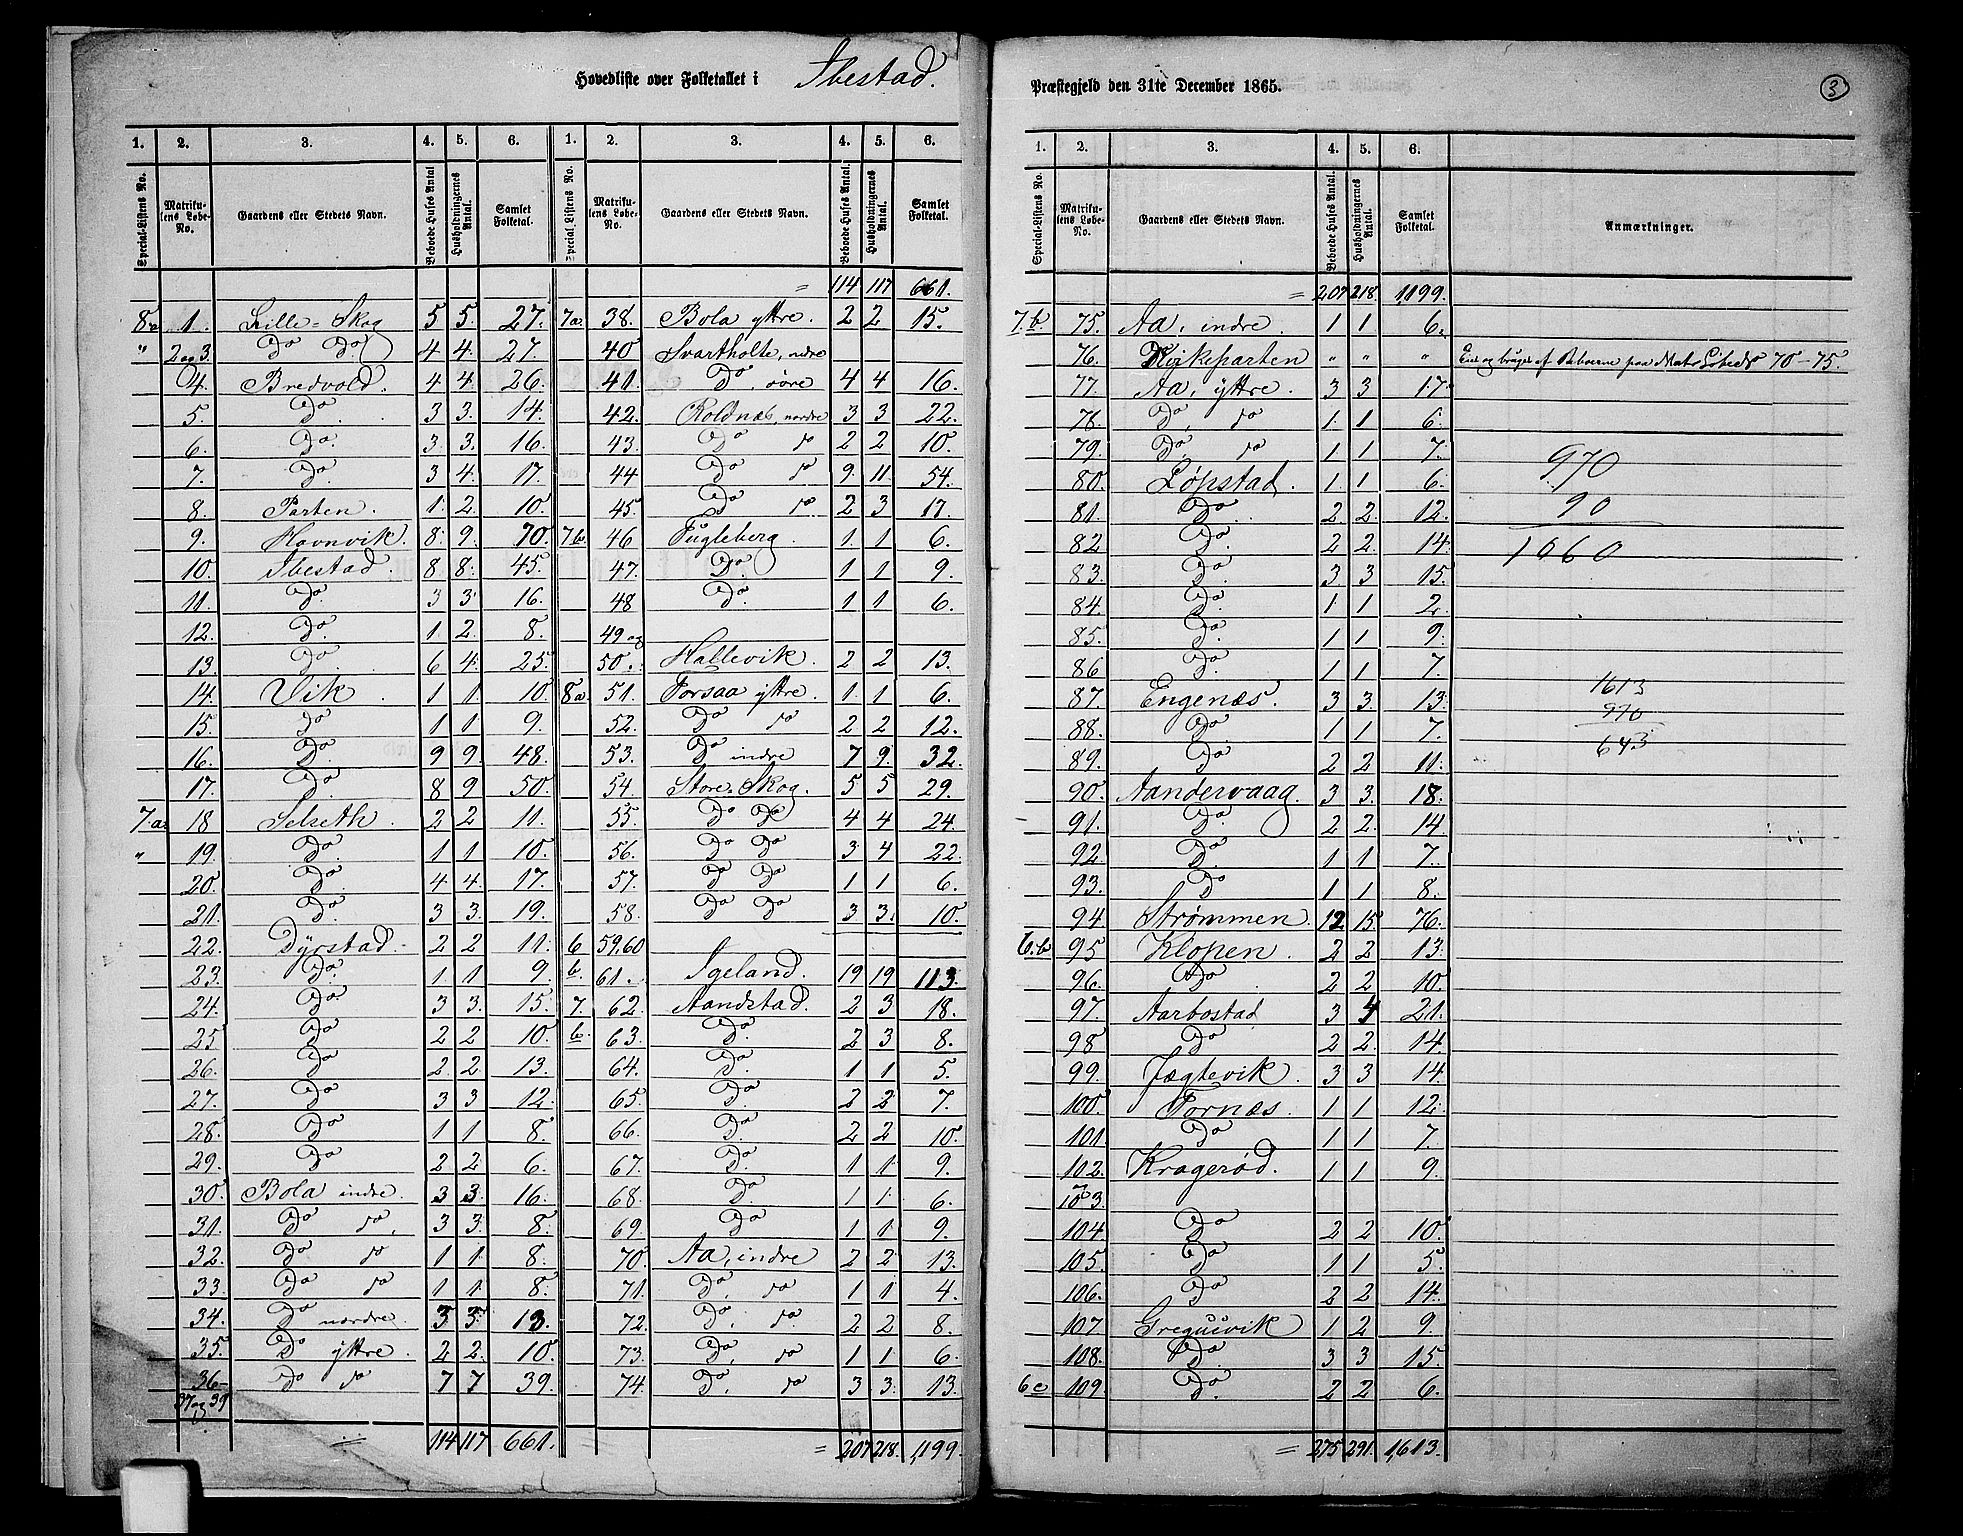 Hovedliste over Folketallet i Ibestad.
Præstegjeld den 31te December 1865.
3
1. 2. 3. 4. 5. 6. 1. 2. 3. 4. 5. 6.
Special-Listens No. Matrikulens Løbe-No. Gaardens eller Stedets Navn. Beboede Huses Antal. Husholdningernes Antal. Samlet Folketal. Special Listens No. Matrikulens Løbe-No. Gaardens eller Stedets Navn. Beboede Huses Antal. Husholdningernes Antal. Samlet Folketal.
= 114 117 661.
8a 1. Lille=Skog 5 5. 27. 7a. 38. Bola yttre. 2 2 15.
" 2 og 3. Do Do 4 4. 27. 40 Svartholte, ndre
4. Bredvold. 4 4. 26. 41. Do, søre 4 4 16.
5. Do. 3 3. 14. 42. Roldnæs, nordre 3 3 22.
6. Do. 3 3. 16. 43. Do do 2 2 10.
7. Do. 3 4. 17. 44 Do do 9 11 54.
8. Parten. 1. 2. 10. 45. Do do 2 3 17.
9. Havnvik. 8. 9. 70. 7b. 46 Fugleberg. 1. 1 6.
10. Ibestad. 8 8. 45. 47. Do. 1 1 9.
11. Do. 3 3. 16. 48 Do. 1 1 6.
12. Do. 1 2. 8. 49 og
13. Do. 6 4. 25. 50. Hallevik. 2 2 13.
14. Vik. 1 1. 10 8a. 51. Forsaa yttre. 1. 1 6.
15. Do 1 1 9. 52. Do do 2 2 12.
16. Do. 9 9. 48. 53. Do indre 7 9. 32.
17. Do. 8 9 50. 54. Store=Skog. 5 5 29.
7.a. 18 Selseth. 2 2 11. 55. Do Do 4 4 24.
" 19. Do. 1 1 10. 56. Do Do 3 4 22.
20. Do. 4 4. 17. 57. Do Do 1 1 6.
21. Do. 3 3. 19. 58. Do Do 3 3. 10.
22. Dyrstad. 2 2 11. 6 59.60
23. Do. 1 1 9. b. 61. Igeland. 19 19 113.
24. Do 3 3. 15. 7. 62. Aandstad. 2 3 18.
25 Do 2 2 10. b. 63. Do. 2 3 8.
26. Do 2 2. 13. 64. Do. 1 1 5.
27. Do 3 3 12. 65. Do. 2 2 7.
28. Do 1 1 8. 66. Do. 2 2 10.
29. Do 2 2 6. 67. Do. 1 1. 9.
30. Bola indre. 3 3. 16. 68. Do. 1 1. 6.
31. Do do, 3 3. 8. 69. Do 1 1 9.
32. Do do 1 1. 8. 70. Aa, indre 2 2 13.
33. Do do 1 1. 8. 71. Do, do 1 1 4.
34. Do nordre. 3 3. 13. 72. Do, do. 2 2 8.
35. Do yttre. 2 2. 10. 73. Do, do 1 1 6.
36- Do do 7 7 39. 74. Do, do 3 3. 13.
37 og 39
= 114 117 661. = 207 218. 1,199.
1. 2. 3. 4. 5. 6.
Special-Listens No. Matrikulens Løbe-No. Gaardens eller Stedets Navn. Beboede Huses Antal. Husholdningernes Antal. Samlet Folketal. Anmærkninger.
= 207 218. 1,199.
7.b. 75. Aa, indre. 1 1 6.
76. Kirkeparten " " " paa 70-75.
77. Aa, yttre. 3 3. 17.
78. Do, do 1. 1 6.
79. Do, do 1 1 7.
80. Løpstad. 1 1 6.
81. Do. 2 2. 12.
82 Do. 2 2. 14.
83. Do. 3 3 15.
84. Do. 1 1 2.
85. Do. 1 1 9.
86 Do. 1 1 7.
87. Engenæs. 3 3. 13.
88. Do. 1 1 7.
89. Do 2 2 11.
90. Aandervaag. 3 3. 18.
91. Do. 2 2. 14
92 Do 1 1 7.
93. Do 1 1 8.
94 Strømmen. 12 15. 76.
6.b 95 Klopen. 2 2 13.
96. Do 2 2 10.
97. Aarbostad 3 4 21.
98 Do 2 2. 14.
99. Jægtevik. 3 3 14.
100. Fornæs. 1 1 12.
101. Do 1 1 7.
102. Kragerød. 1 1 9.
103.
104 Do 2 2 10.
105. Do 1 1 5.
106. Do 2 2 14.
107. Gregusvik 1 2 9.
108. Do. 3 3 15.
6c 109. Do. 2 2 6.
= 275 291. 1,613.
970
90
1060
1613
970
643